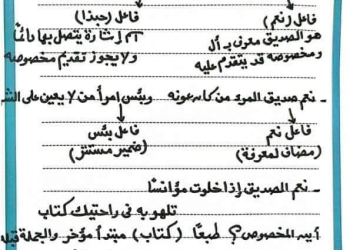 فاعل (نعم) فاعل (حبذا)
هو الصديق معرف بـ أل اسم إشارة يتصل بها دائمًا
ومخصوصه قد يتقدم عليه ولا يجوز تقديم مخصوصه
ـ نعم صديق المرء من كان عونه وبئس امرأ من لا يعين على الشر
فاعل نعم فاعل بئس
(مضاف لمعرفة) (ضمير مستتر)
ـ نعم الصديق إذا خلوت مؤانسًا
تلهو به فى راحتيك كتاب
أين المخصوص؟ طبعًا (كتاب) مبتدأ مؤخر والجملة قبله